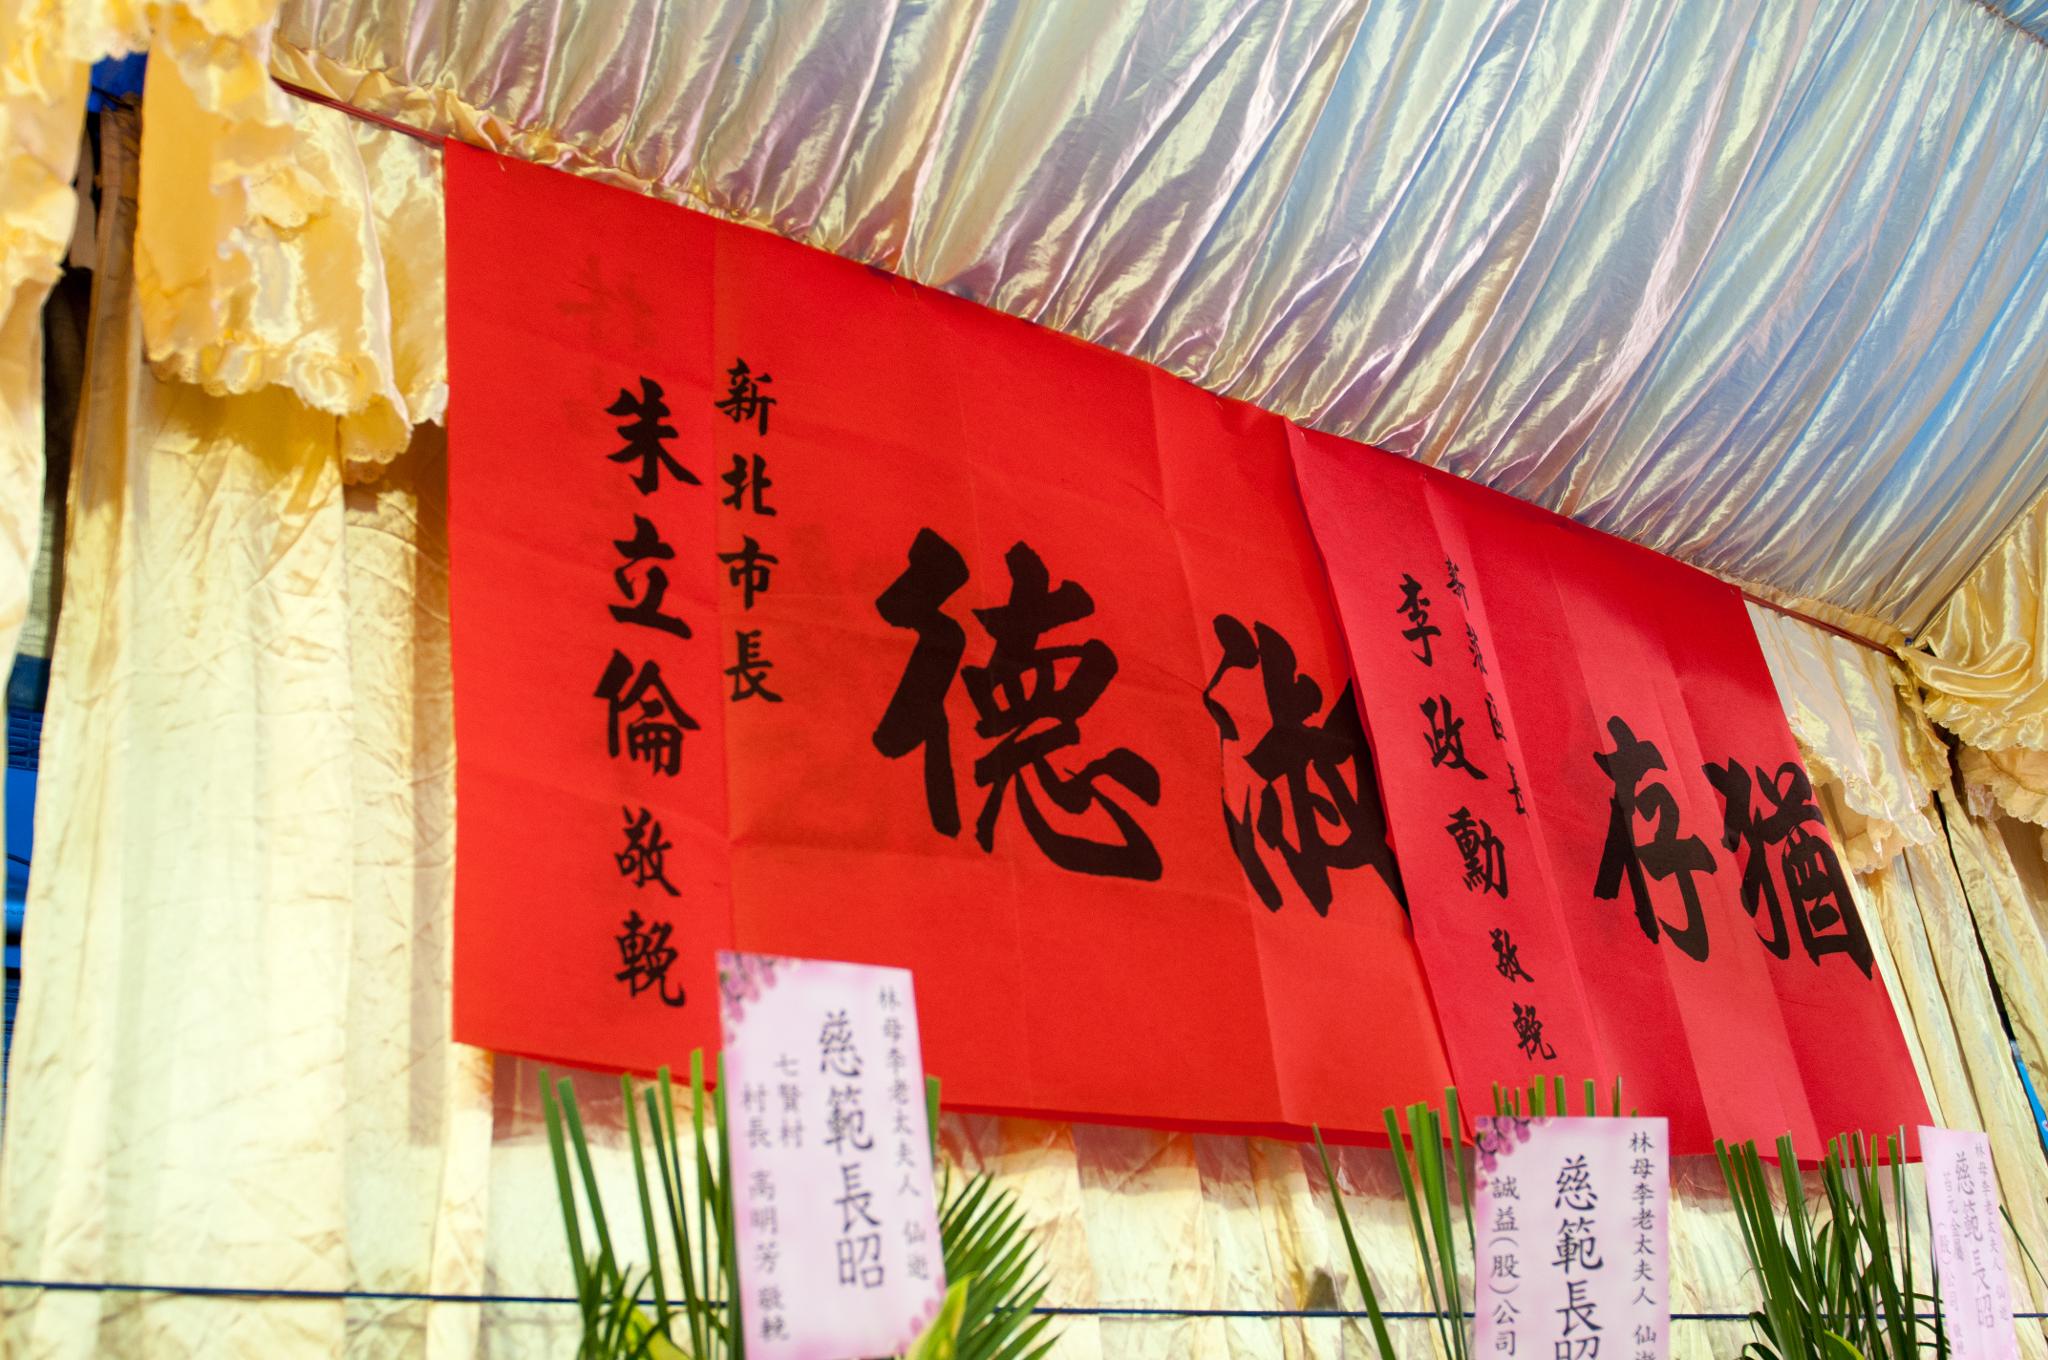 淑德
新北市長
朱立倫 敬輓
猶存
李政勳 敬輓
林母李老太夫人 仙逝
慈範長昭
七賢村
村長 高明芳 敬輓
林母李老太夫人 仙逝
慈範長昭
誠益(股)公司
林母李老太夫人 仙逝
慈範長昭